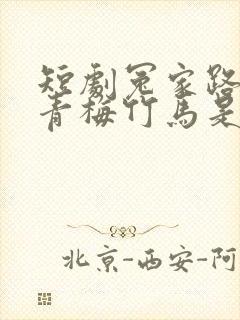 短劇冤家路
青梅竹馬是
北京-西安-阿